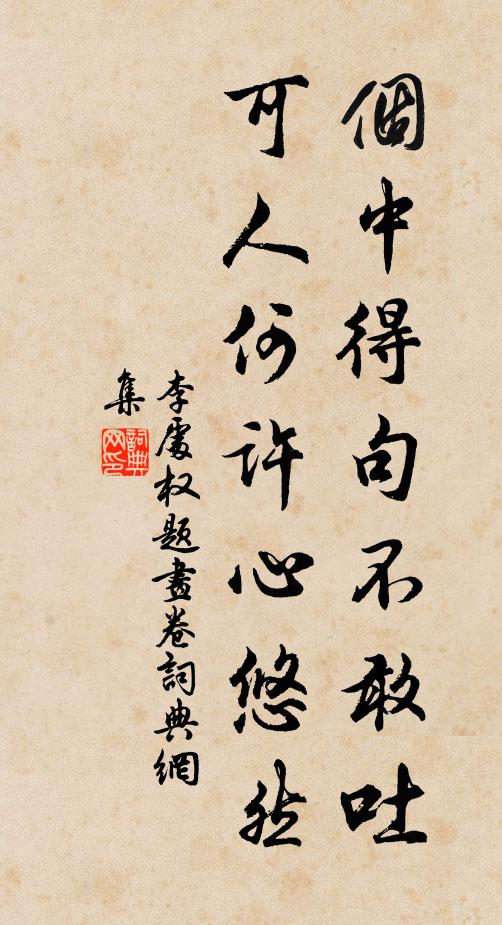 個中得句不敢吐
可人何許心悠然
李處权題畫卷詞典網
集
詞典
网印